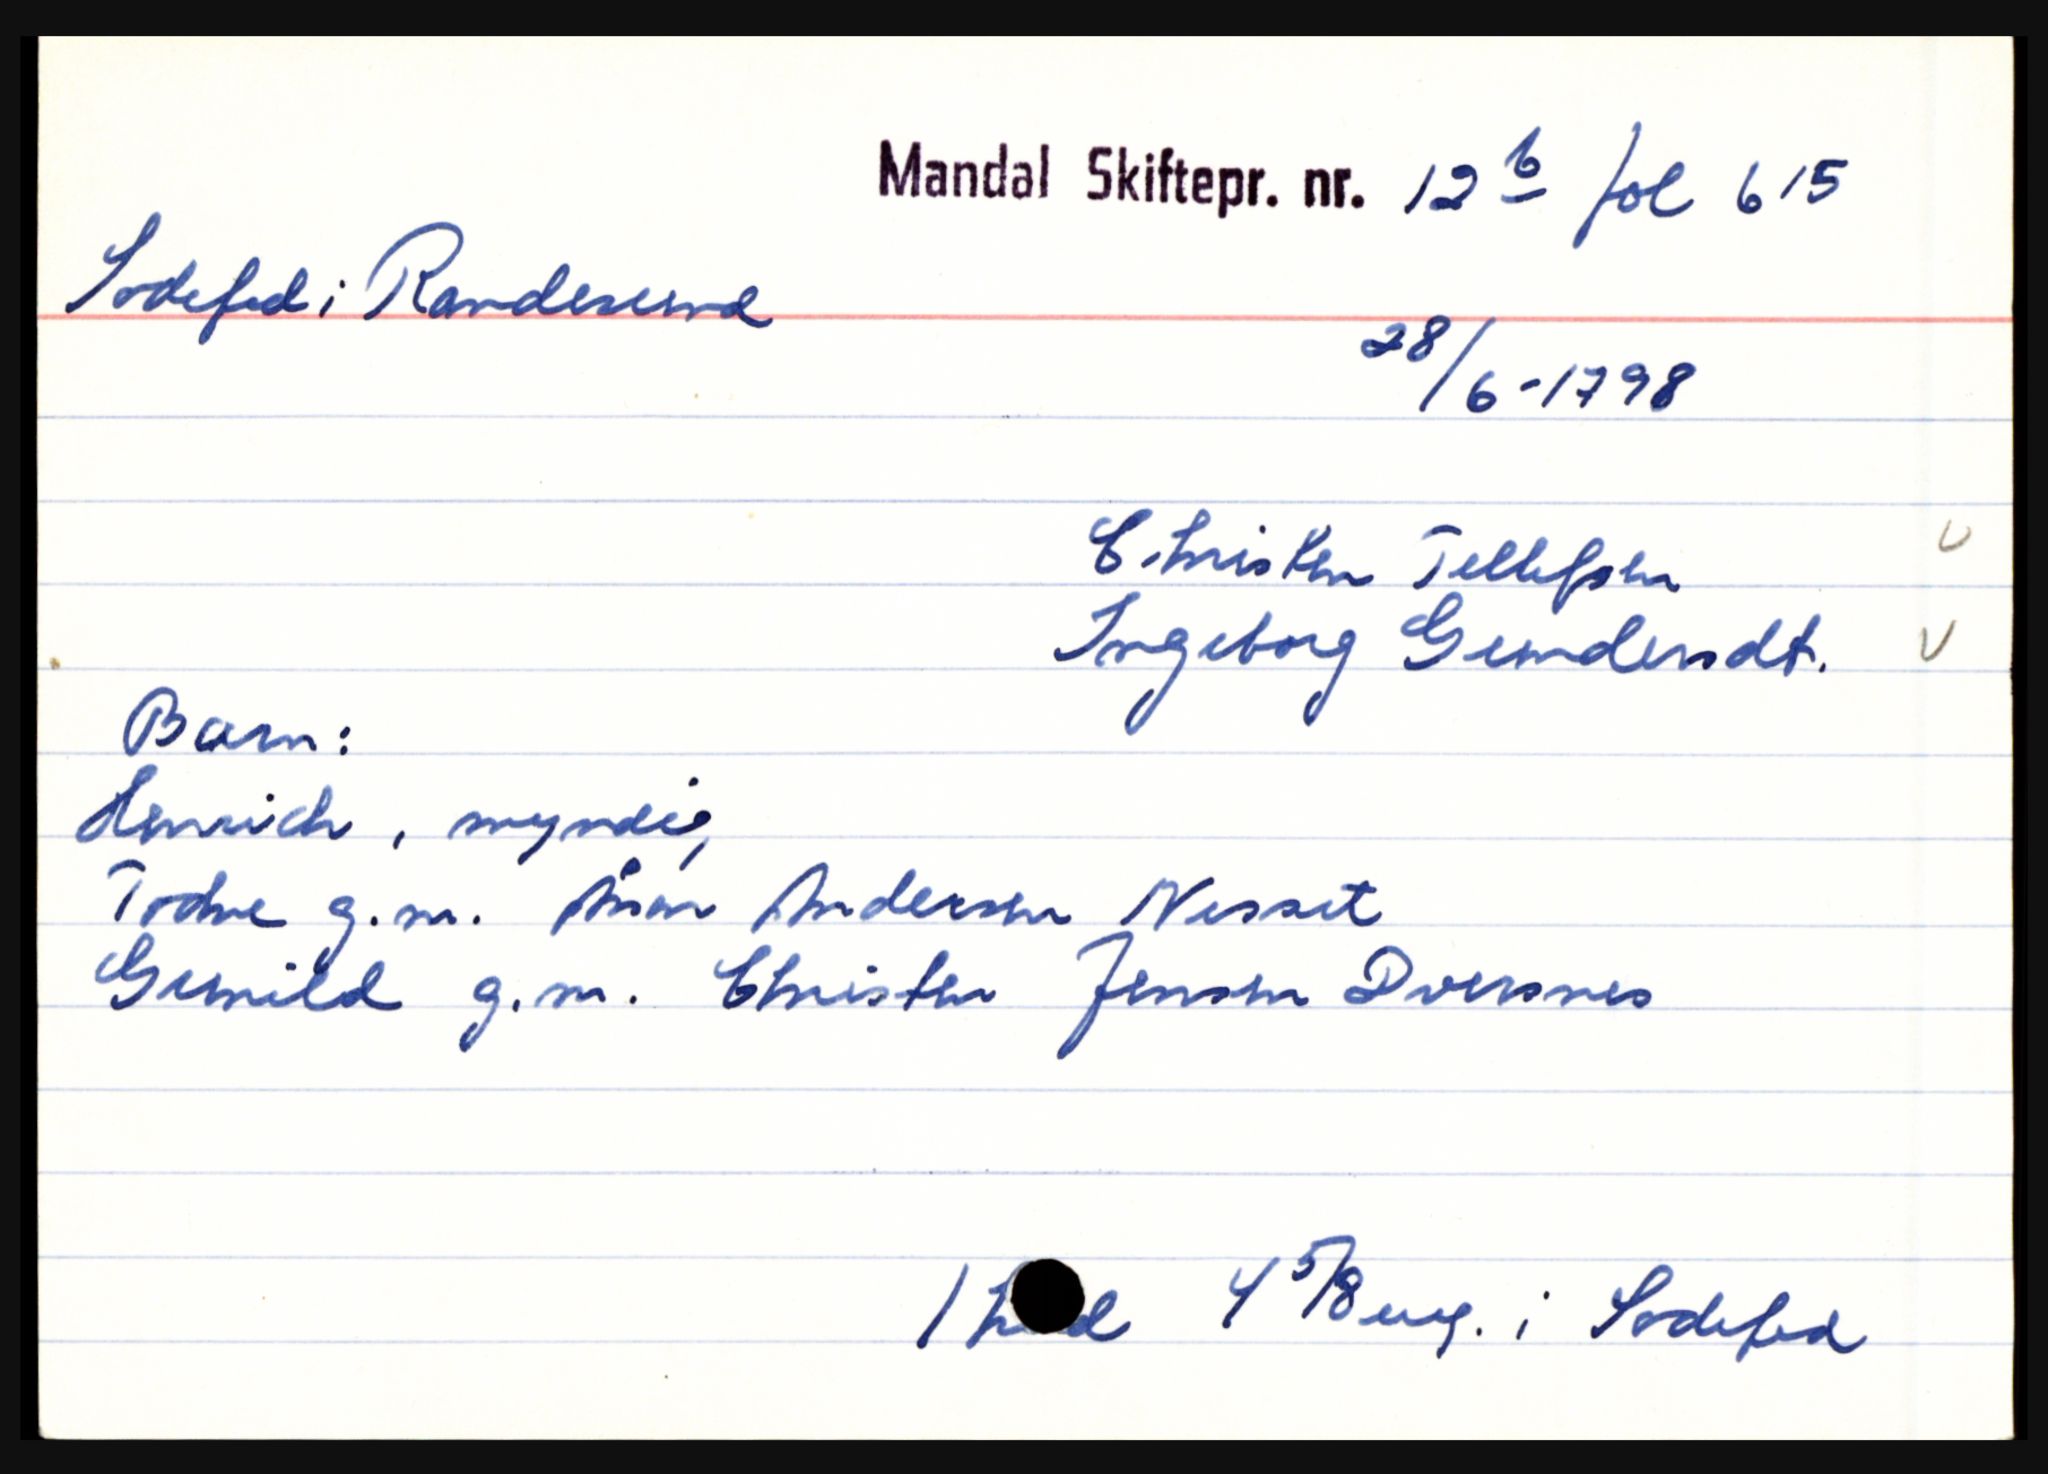 Mandal Skiftepr. nr. 12 b fol 615
Sodefed i Randesund
28/6-1798
Christen Tellefsen V
Ingeborg Gundersdt. V
Barn:
Henrich, myndig,
Todne g.m. Ånon Andersen Nesset
Gunild g.m. Christen Jensen Dversnes
1 hud 4 5/8 eng. i Sodefed